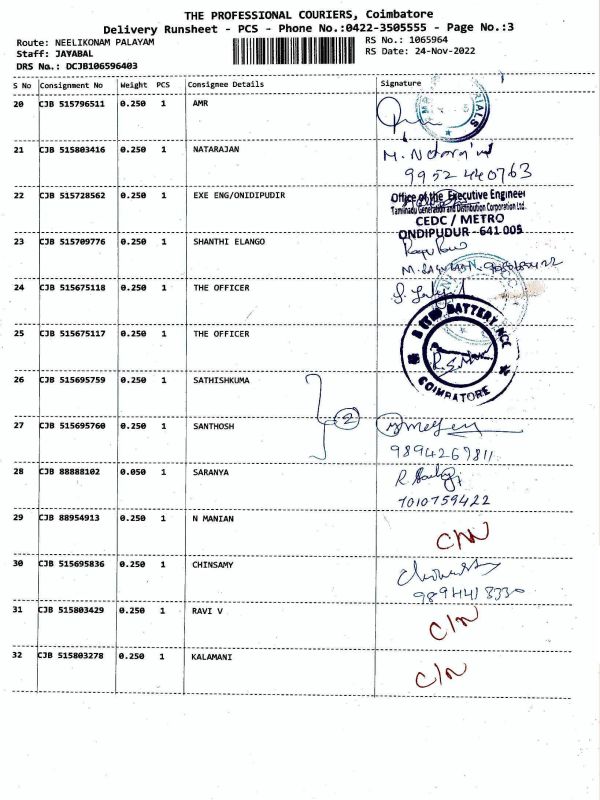 THE PROFESSIONAL COURIERS, Coimbatore
Delivery Runsheet - PCS - Phone No.:0422-3505555 - Page No.:3
Route: NEELIKONAM PALAYAM
RS No.: 1065964
Staff: JAYABAL
RS Date: 24-Nov-2022
DRS No.: DCJB106596403
S No Consignment No Weight PCS Consignee Details Signature
20 CJB 515796511 0.250 1 AMR
21 CJB 515803416 0.250 1 NATARAJAN
9952440763
22 CJB 515728562 0.250 1 EXE ENG/ONIDIPUDIR
Office of the Executive Engineer
Tamilnadu Generation and Distribution Corporation Ltd.
CEDC / METRO
ONDIPUDUR - 641 005
23 CJB 515709776 0.250 1 SHANTHI ELANGO
24 CJB 515675118 0.250 1 THE OFFICER
25 CJB 515675117 0.250 1 THE OFFICER
BATTERY NCC
COIMBATORE
26 CJB 515695759 0.250 1 SATHISHKUMA
2
27 CJB 515695760 0.250 1 SANTHOSH
9894267811
28 CJB 88888102 0.050 1 SARANYA
7010759422
29 CJB 88954913 0.250 1 N MANIAN
C/N
30 CJB 515695836 0.250 1 CHINSAMY
9894413330
31 CJB 515803429 0.250 1 RAVI V
C/N
32 CJB 515803278 0.250 1 KALAMANI
C/N